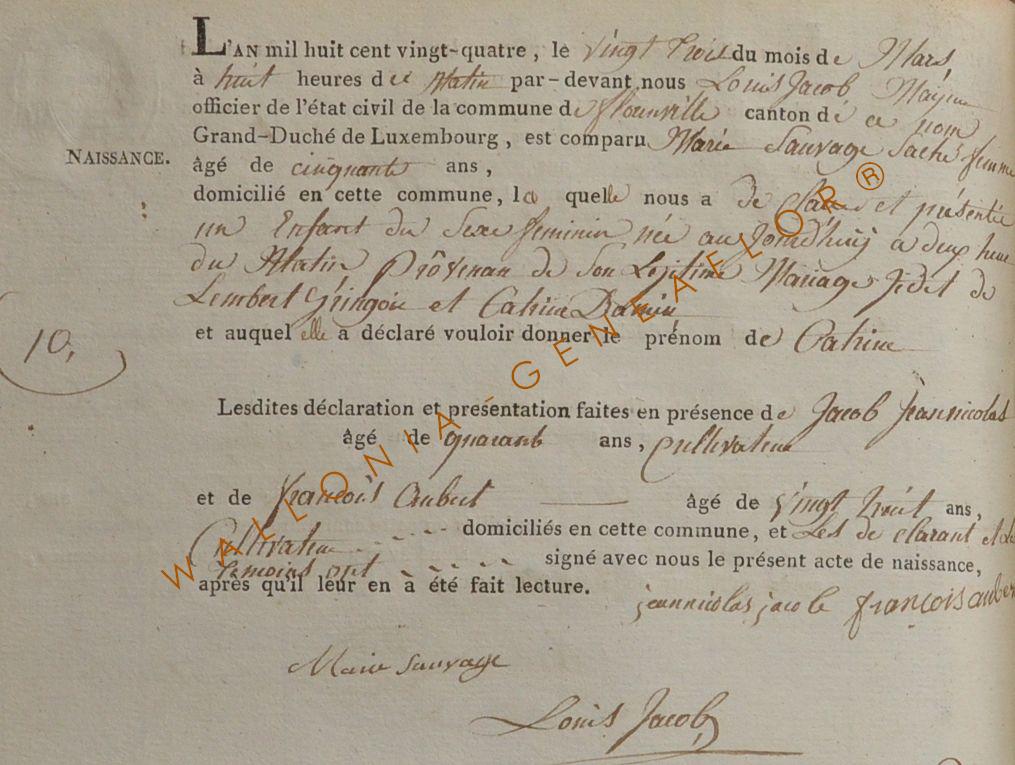 L'AN mil huit cent vingt-quatre, le vingt trois du mois de Mars
à huit heures dee Matin par-devant nous Louis Jacob Mayeur
officier de l'état civil de la commune de flourville canton de ce nom
Grand-Duché de Luxembourg, est comparu Marie Sauvage Sache femme
NAISSANCE.
âgé de cinquante ans,
domicilié en cette commune, la quelle nous a de Claré et présentée
un Enfant du Sexe feminin née au Jourdhuij a deux heure
du Matin Prôvenan de Son Legitime Mariage de
Lembert Gringoire et Catrine Damin
et auquel elle a déclaré vouloir donner le prénom de Catrine
10,
Lesdites déclaration et présentation faites en présence de Jacob Jeannicolas
âgé de quarante ans, Cultivateur
et de françois aubert âgé de vingt huit ans,
Cultivateur domiciliés en cette commune, et Les de Clarant et Le
temoins ont signé avec nous le présent acte de naissance,
après qu'il leur en à été fait lecture.
jeannicolas jacob françois aubert
Marie Sauvage
Louis Jacob
WALLONIA GENEALOR®